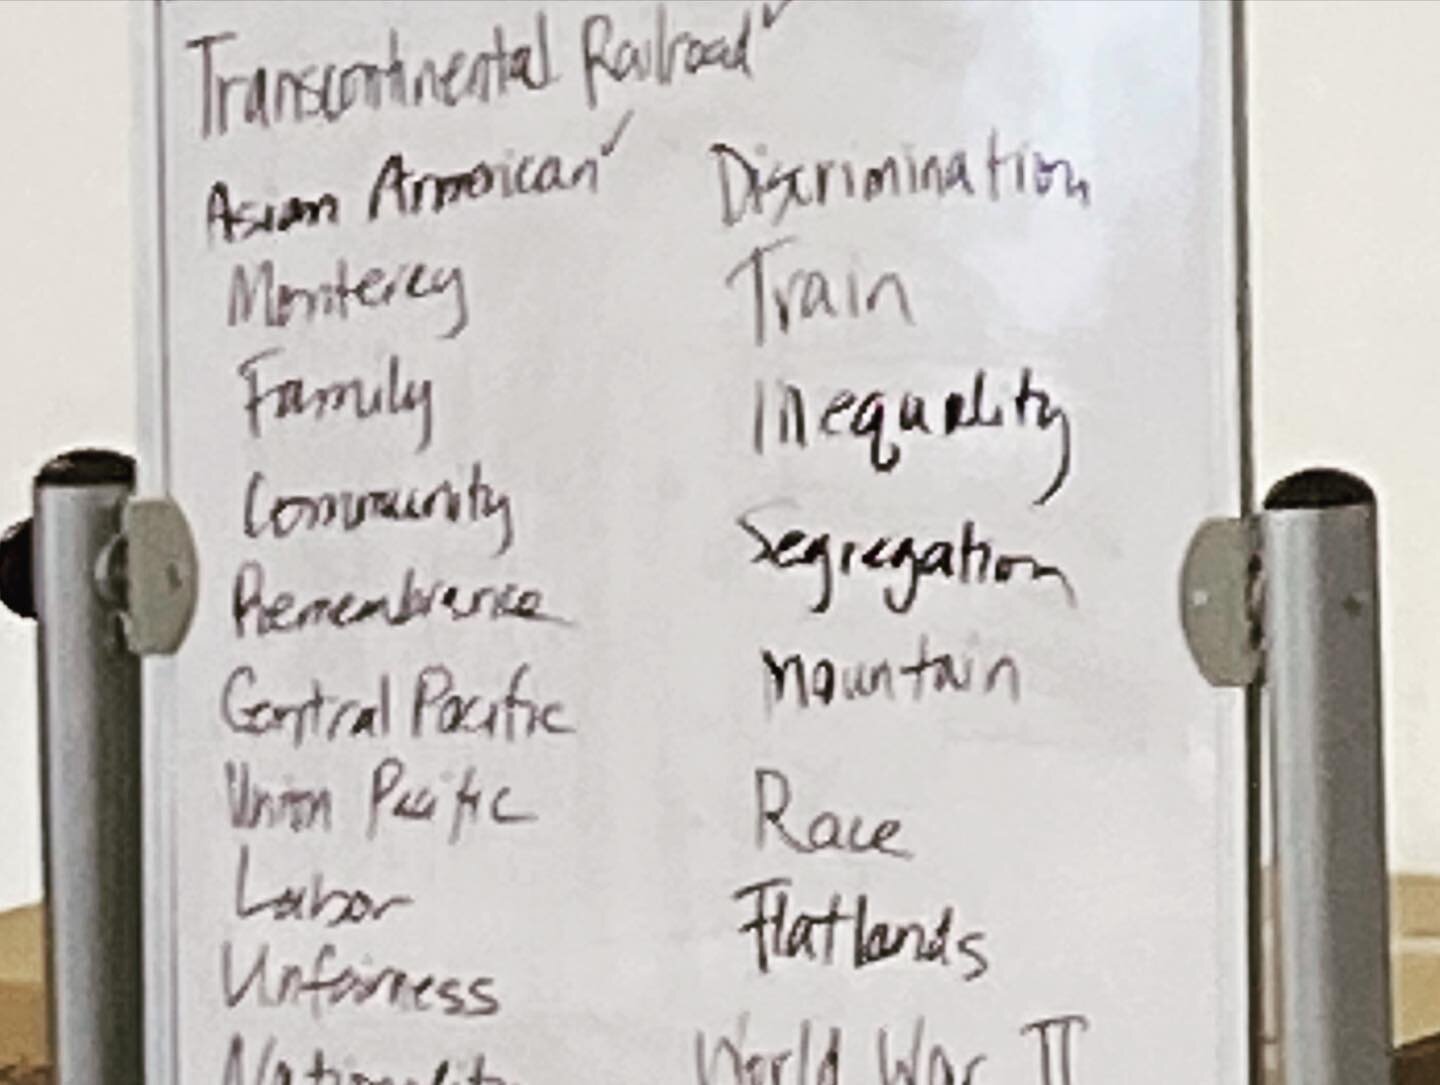 Transcontinental Railroad ✓
Asian American ✓
Monterey
Family
Community
Remembrance
Central Pacific
Union Pacific
Labor
Unfairness
Nationality
Discrimination
Train
Inequality
Segregation
Mountain
Race
Flatlands
World War II